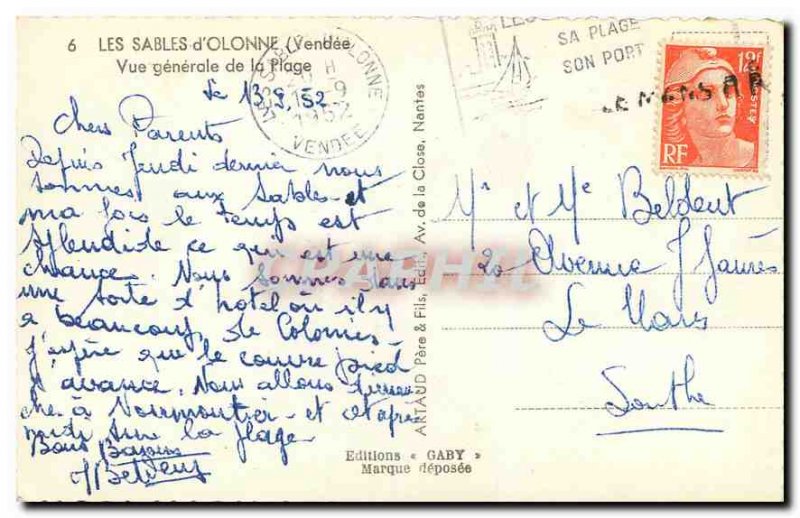 6 LES SABLES d'OLONNE (Vendée
Vue générale de la Plage
Le 13.9.52
Chers Parents
Depuis Jeudi dernier nous
sommes aux Sables et
ma fois le temps est
splendide ce qui est une
chance. Nous sommes dans
une sorte d'hotel où il y
a beaucoup de Colonies
J'espère que le couvre pied
avance. Nous allons
à Noirmoutier et
midi sur la plage
Bons Baisers
Editions « GABY »
Marque déposée
ARTAUD Père & Fils, Édit., Av. de la Close, Nantes
OLONNE
13 -9
1952
VENDÉE
LES
SA PLAGE
SON PORT
LE MANS
12F
POSTES
RF
Mr et Me Beldent
20 Avenue J Jaurès
Le Mans
Sarthe
CPAPHIL